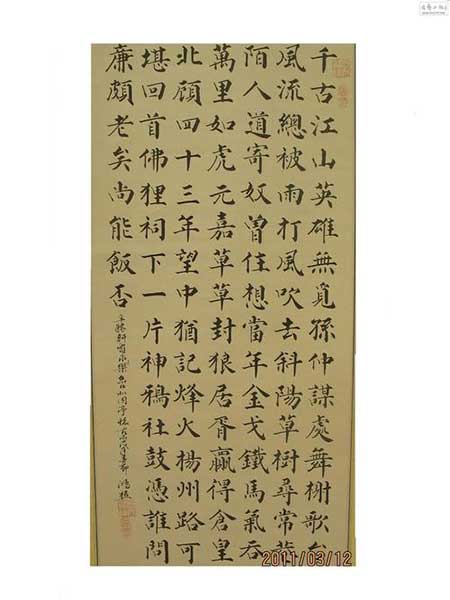 千古江山英雄無覓孫仲謀處舞榭歌台
風流總被雨打風吹去斜陽草樹尋常巷
陌人道寄奴曾住想當年金戈鐵馬氣吞
萬里如虎元嘉草草封狼居胥贏得倉皇
北顧四十三年望中猶記烽火楊州路可
堪回首佛狸祠下一片神鴉社鼓憑誰問
廉頗老矣尚能飯否
2011/03/12